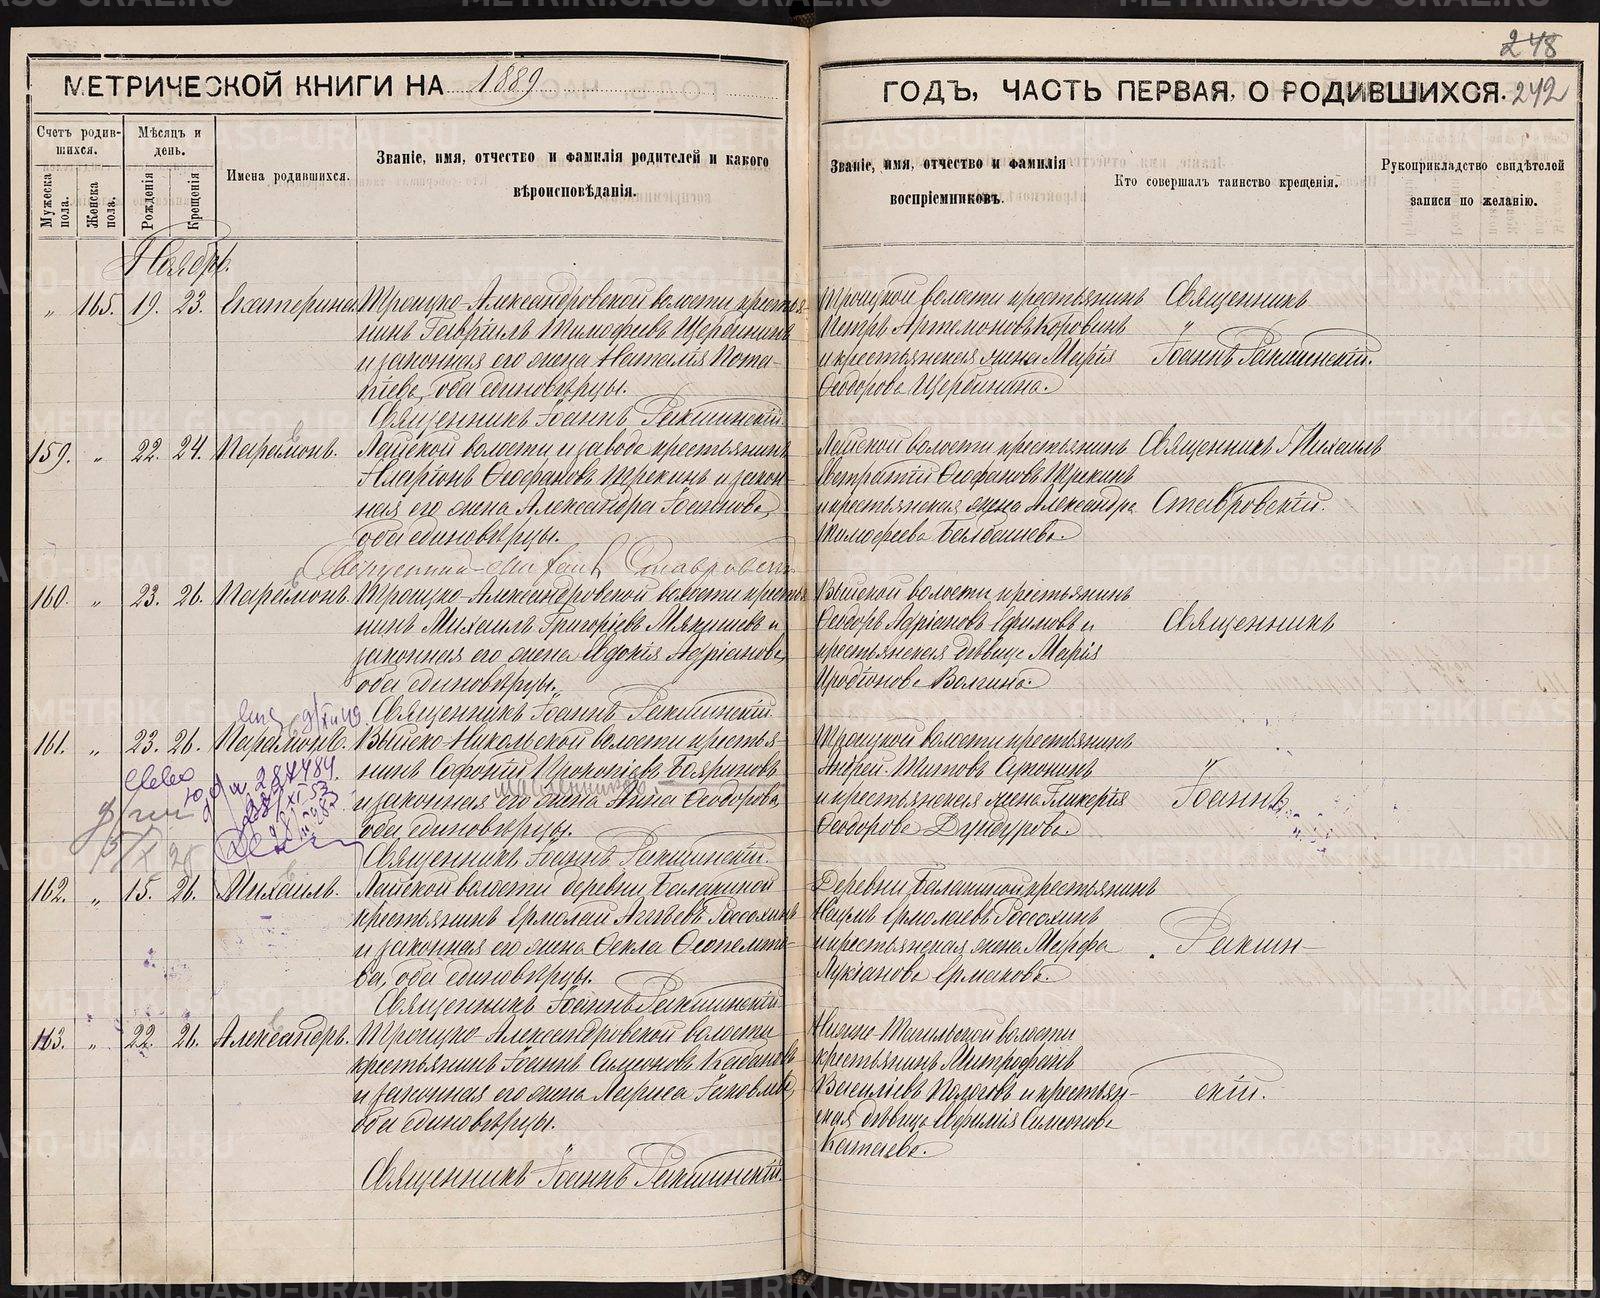 248
МЕТРИЧЕСКОЙ КНИГИ НА 1889
ГОДЪ, ЧАСТЬ ПЕРВАЯ, О РОДИВШИХСЯ. 242
Счетъ родившихся.
Мужеска пола.
Женска пола.
Мѣсяцъ и день.
Рожденія
Крещенія
Имена родившихся.
Званіе, имя, отчество и фамилія родителей и какого
вѣроисповѣданія.
Званіе, имя, отчество и фамилія
воспріемниковъ.
Кто совершалъ таинство крещенія.
Рукоприкладство свидѣтелей
записи по желанію.
Ноябрь.
" 165. 19. 23. Екатерина
Троицко-Александровской волости кресть-
нинъ Гавріилъ Тимофеевъ Щербининъ
и законная его жена Наталія Пота-
піева, оба единовѣрцы.
Священникъ Іоаннъ Ракшинскій.
Троицкой волости крестьянинъ
Петръ Артемоновъ Коровинъ
и крестьянская жена Марія
Феодорова Щербинина.
Священникъ
Іоаннъ Ракшинскій.
159. " 22. 24. Парамонъ.
Лайской волости и завода крестьянинъ
Иларіонъ Феофановъ Трекинъ и закон-
ная его жена Александра Іоаннова,
оба единовѣрцы.
Священникъ Михаилъ Ставровскій
Лайской волости крестьянинъ
Евтратій Феофановъ Трекинъ
и крестьянская жена Александра
Тимофеева Балдашева.
Священникъ Михаилъ
Ставровскій.
160. " 23. 26. Парамонъ.
Троицко-Александровской волости кресть-
нинъ Михаилъ Григоріевъ Мякишевъ и
законная его жена Евдокія Адріанова,
оба единовѣрцы.
Священникъ Іоаннъ Ракшинскій.
Выйской волости крестьянинъ
Феодоръ Адріановъ Ефимовъ и
крестьянская дѣвица Марія
Иродіонова Волгина.
Священникъ
161. " 23. 26. Парамонъ.
Выйско-Никольской волости крестья-
нинъ Софоній Прокопіевъ Бояриновъ
и законная его жена Анна Феодорова,
оба единовѣрцы.
Священникъ Іоаннъ Ракшинскій.
Троицкой волости крестьянинъ
Андрей Титовъ
и крестьянская жена Гликерія
Феодорова Дундурова.
Іоаннъ
162. " 15. 26. Михаилъ.
Лайской волости деревни Балакиной
крестьянинъ Ермолай Аггѣевъ Россохинъ
и законная его жена Фекла Феопемпто-
ва, оба единовѣрцы.
Священникъ Іоаннъ Ракшинскій.
Деревни Балакиной крестьянинъ
Наумъ Ермолаевъ Россохинъ
и крестьянская жена Марфа
Лукіанова Ермакова.
Ракшин-
163. " 22. 26. Александръ.
Троицко-Александровской волости
крестьянинъ Іоаннъ Симеоновъ Кабановъ
и законная его жена Лариса Іаковлева,
оба единовѣрцы.
Священникъ Іоаннъ Ракшинскій.
Нижне-Тагильской волости
крестьянинъ Митрофанъ
Василіевъ Пологовъ и крестьян-
ская дѣвица Евфимія Симеонова
Катаева.
скій.